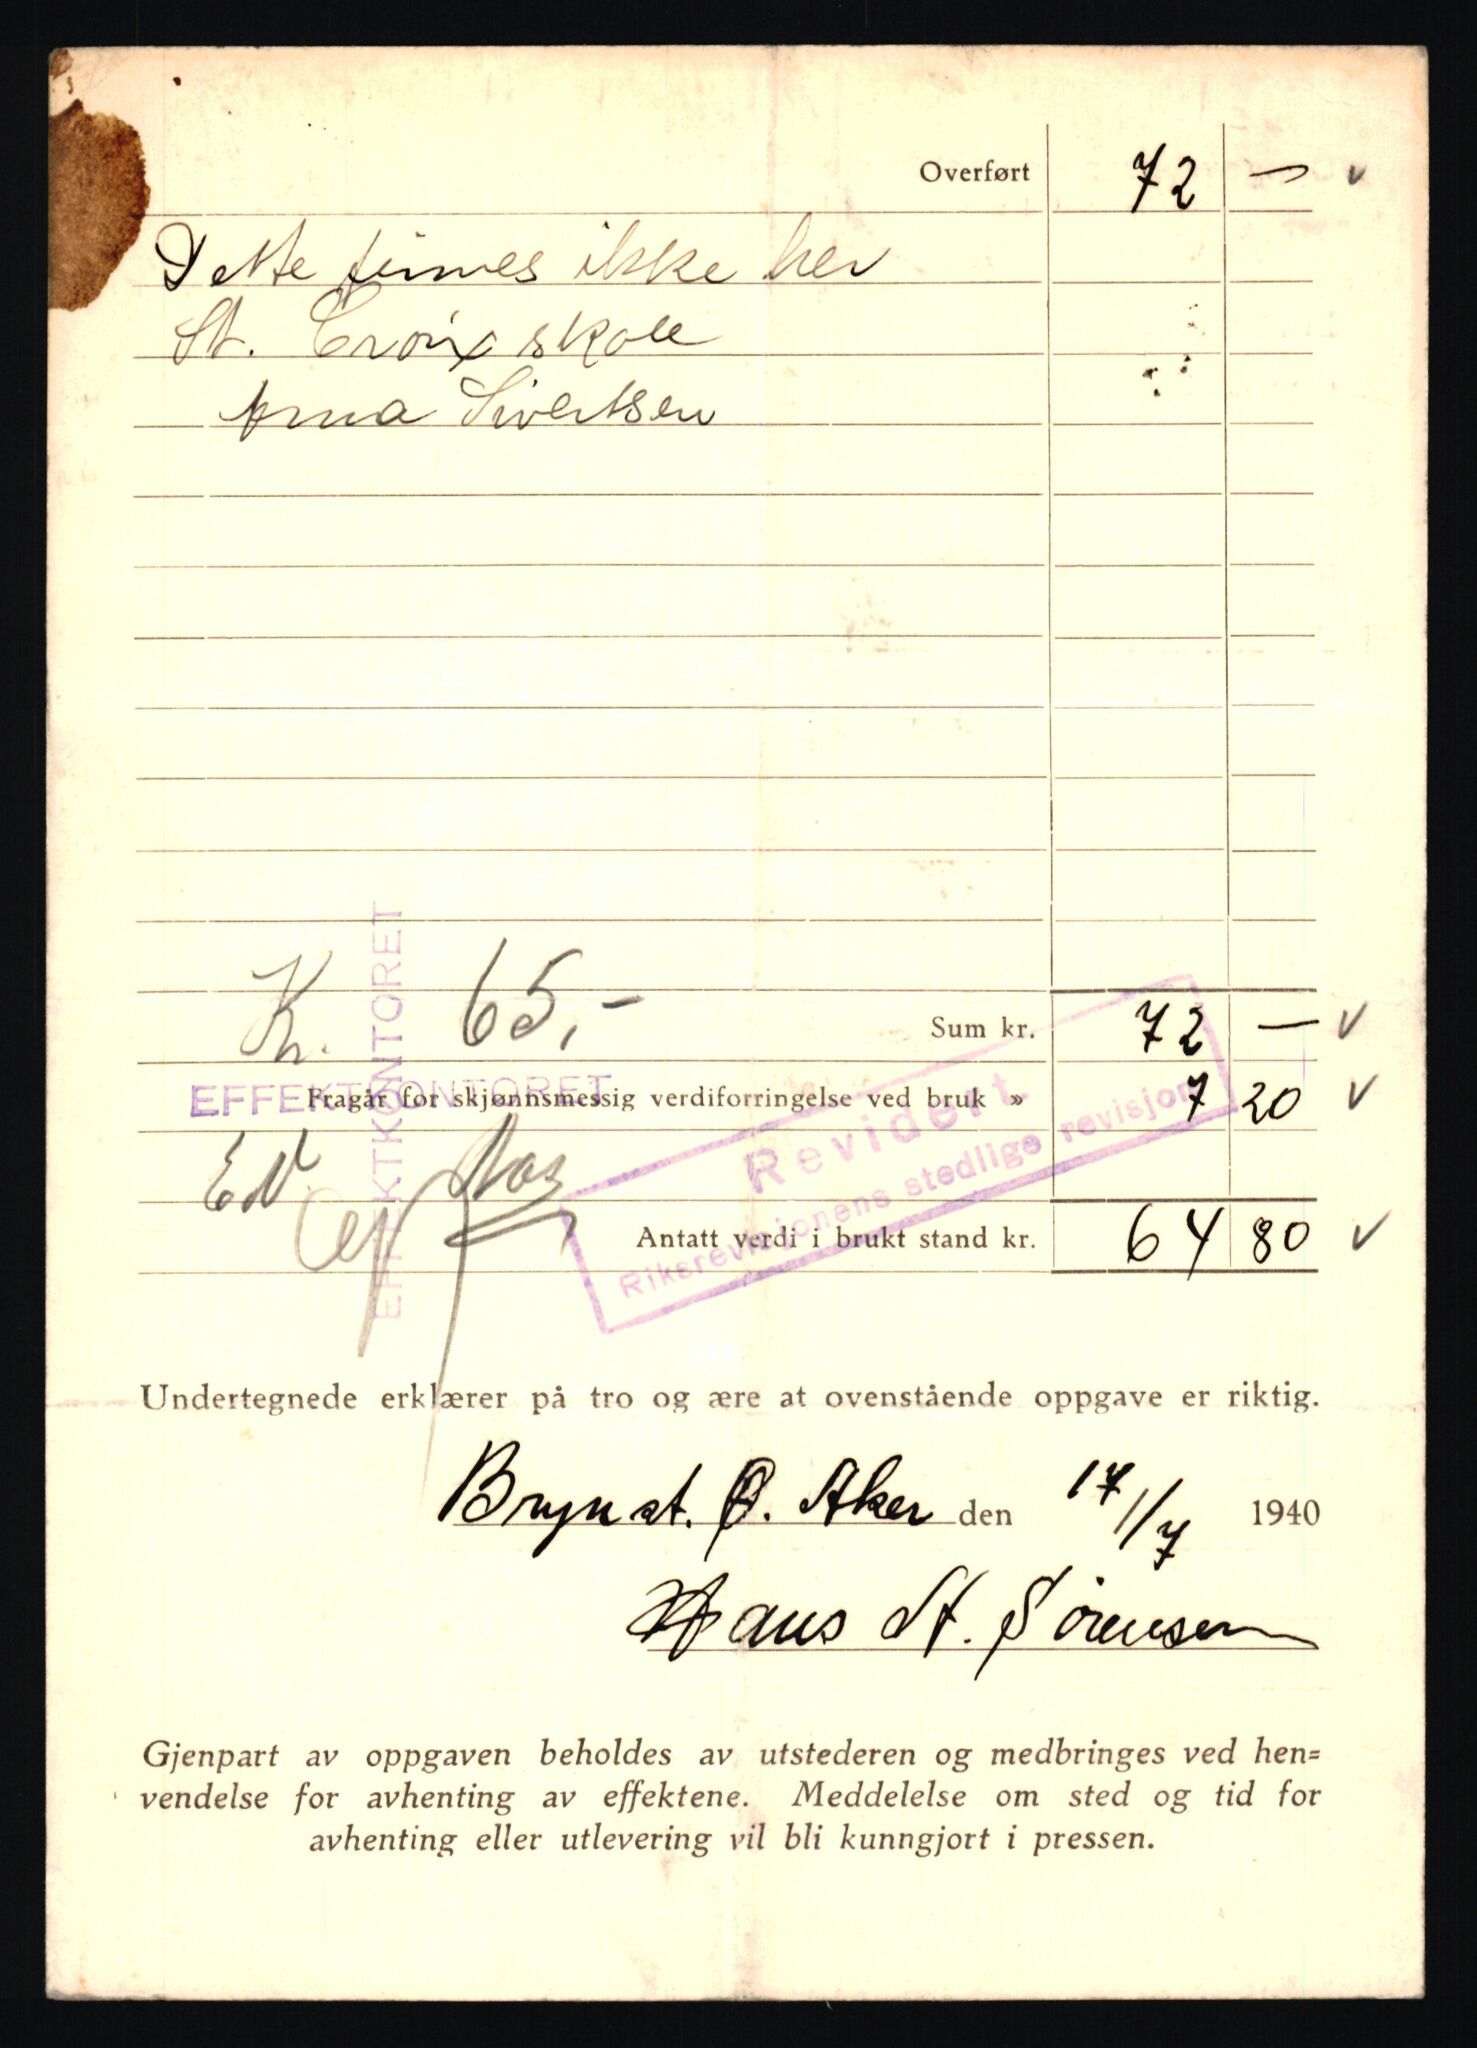 Overført 72 —
Dette finnes ikke her
St. Croix skole
Anna Sivertsen
Kr. 65,-
Sum kr. 72 —
EFFEKTKONTORET
EFFEKTKONTORET
Fragår for skjønnsmessig verdiforringelse ved bruk » 7 20
Revidert
Riksrevisjonens stedlige revisjon
EN.
Antatt verdi i brukt stand kr. 64 80
Undertegnede erklærer på tro og ære at ovenstående oppgave er riktig.
Bryn st. Ø. Aker den 17/7 1940
Hans St. Sørensen
Gjenpart av oppgaven beholdes av utstederen og medbringes ved hen=
vendelse for avhenting av effektene. Meddelelse om sted og tid for
avhenting eller utlevering vil bli kunngjort i pressen.